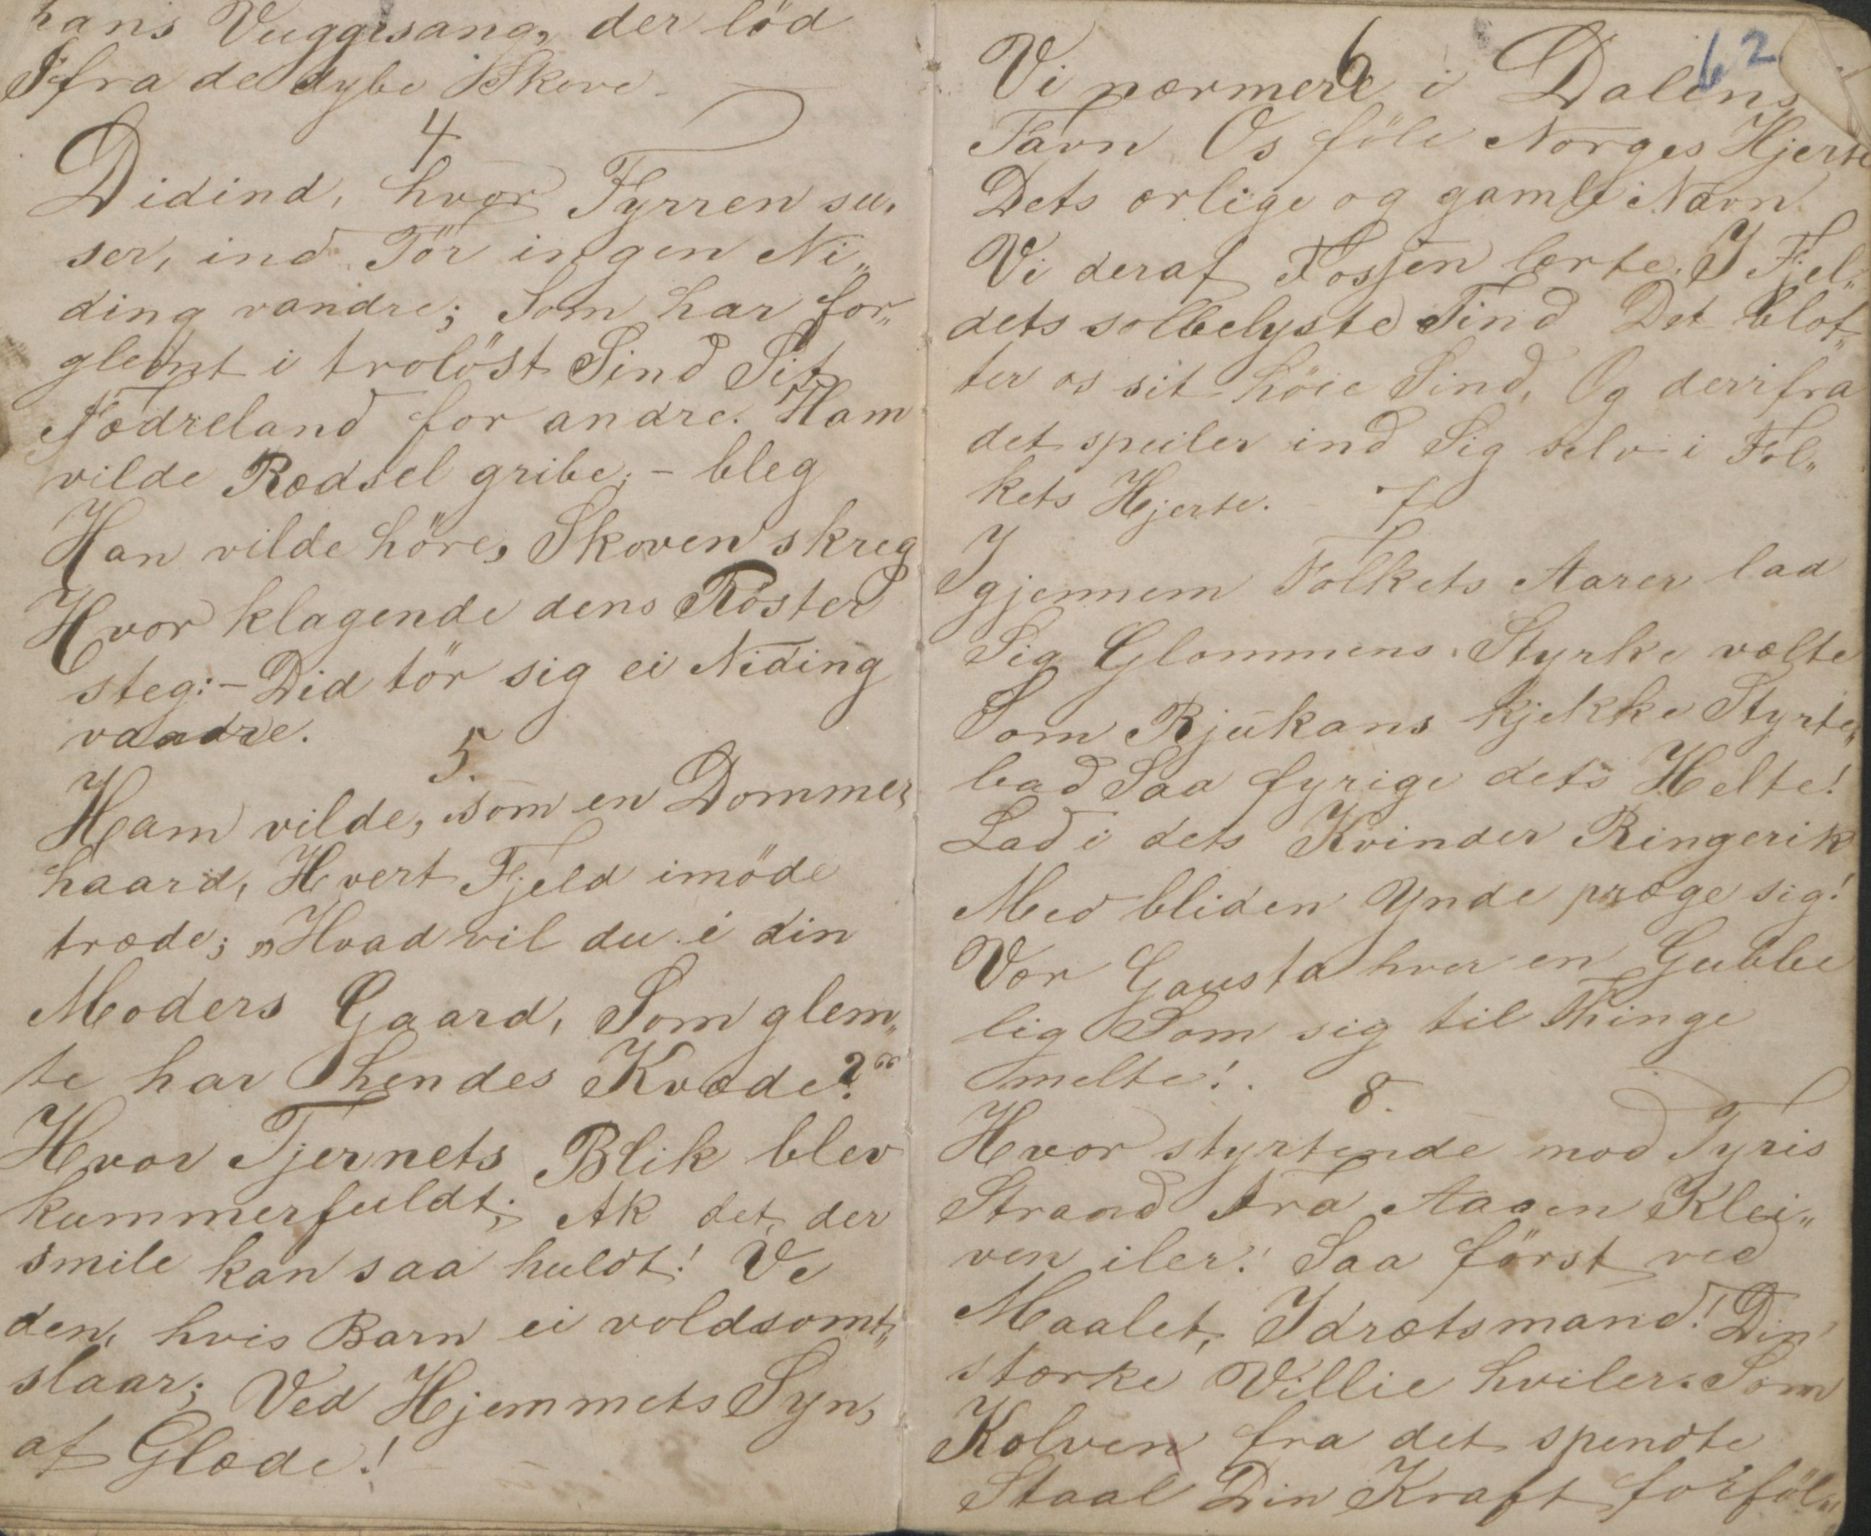 hans Vuggesang, der löd
Ifra de dybe Skove.
4
Didind, hvor Fyrren su„
ser, ind Tör ingen Ni„
ding vandre; Som har for„
glemt i trolöst Sind Sit
Fædreland for andre. Ham
vilde Rædsel gribe; – bleg
Han vilde höre, Skoven skreg
Hvor klagende dens Röster
steg: – Did tör sig ei Niding
vaadre.
5.
Ham vilde, som en Dommer
haard, Hvert Fjeld imöde
træde; „Hvad vil du i din
Moders Gaard, Som glem„
te har hendes Kvæde?“
Hvor Tjernets Blik blev
kummerfuldt; Ak det, der
smile kan saa huldt! Ve
den, hvis Barn ei voldsomt„
slaar; Ved Hjemmets Syn,
af Glæde!
62
6
Vi nærmere i Dalens
Favn Os föle Norges Hjerte
Dets ærlige og gamle Navn
Vi deraf Fossen lærte. I Fjel„
dets solbelyste Tind Det blot„
ter os sit höie Sind, Og derifra
det speiler ind Sig selv i Fol„
kets Hjerte.
7
Igjennem Folkets Aarer lad
Sig Glommens Styrke vælte
Som Rjukans kjekke Styrte„
bad Saa fyrige dets Helte!
Lad i dets Kvinder Ringerik
Med bliden Ynde præge sig!
Vær Gausta hver en Gubbe
lig Som sig til Thinge
melte!
8.
Hvor styrtende mod Tyris
Strand Fra Aasen Klei„
ven iler! Saa först ved
Maalet, Idrætsmand! Din
stærke Villie hviler. Som
Kolven fra det spendte
Staal Din Kraft forföl„